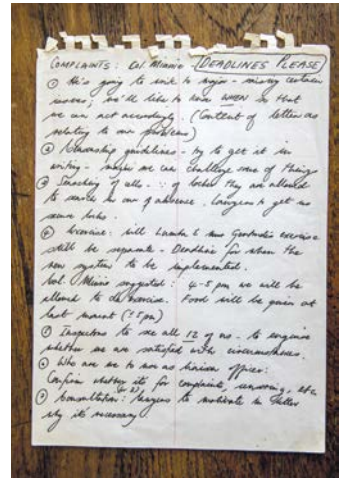 COMPLAINTS: Col. Minnie - (DEADLINES PLEASE)
① He's going to write to major - raising certain
issues; we'd like to know WHEN so that
we can act accordingly. (Content of letter as
relating to our problems)
② Censorship guidelines - try to get it in
writing - maybe we can challenge some of things
③ Searching of cells - : if locked they are allowed
to search in our absence. Lawyers to get us
some locks.
④ Exercise: will & exercise
still be separate - Deadline for when the
new system to be implemented.
Col. Minnie suggested: 4-5 pm we will be
allowed to do exercise. Food will be given at
last moment (± 5pm)
⑤ Inspectors to see all 12 of us - to enquire
whether we are satisfied with circumstances.
⑥ Who are we to use as liaison officer:
Confirm whether it's for complaints, etc.
⑦ Consultation: lawyers to motivate in letter
why it's necessary